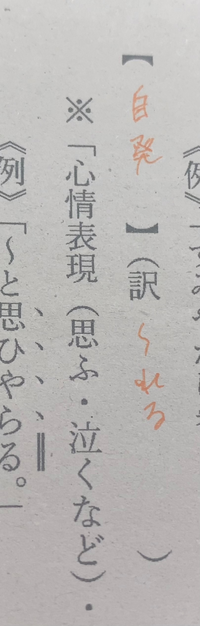 【 自発 】(訳 〜れる )
※「心情表現(思ふ・泣くなど)・
《例》「〜と思ひやらる。